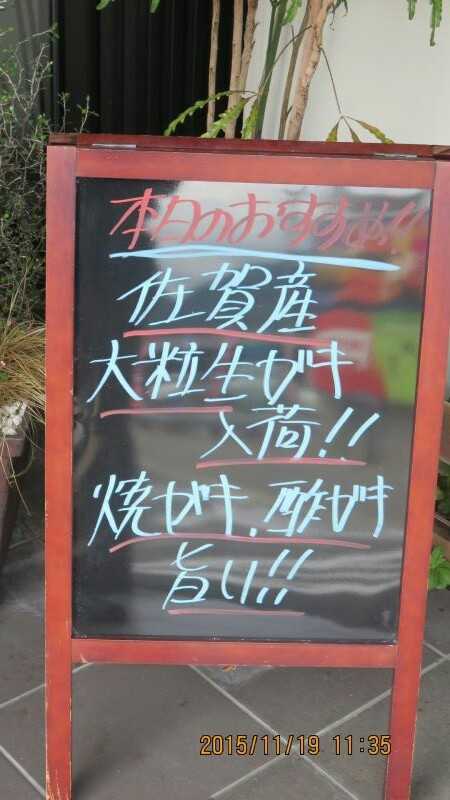 本日のおすすめ!!
佐賀産
大粒生がき
入荷!!
焼がき、酢がき
旨い!!
2015/11/19 11:35